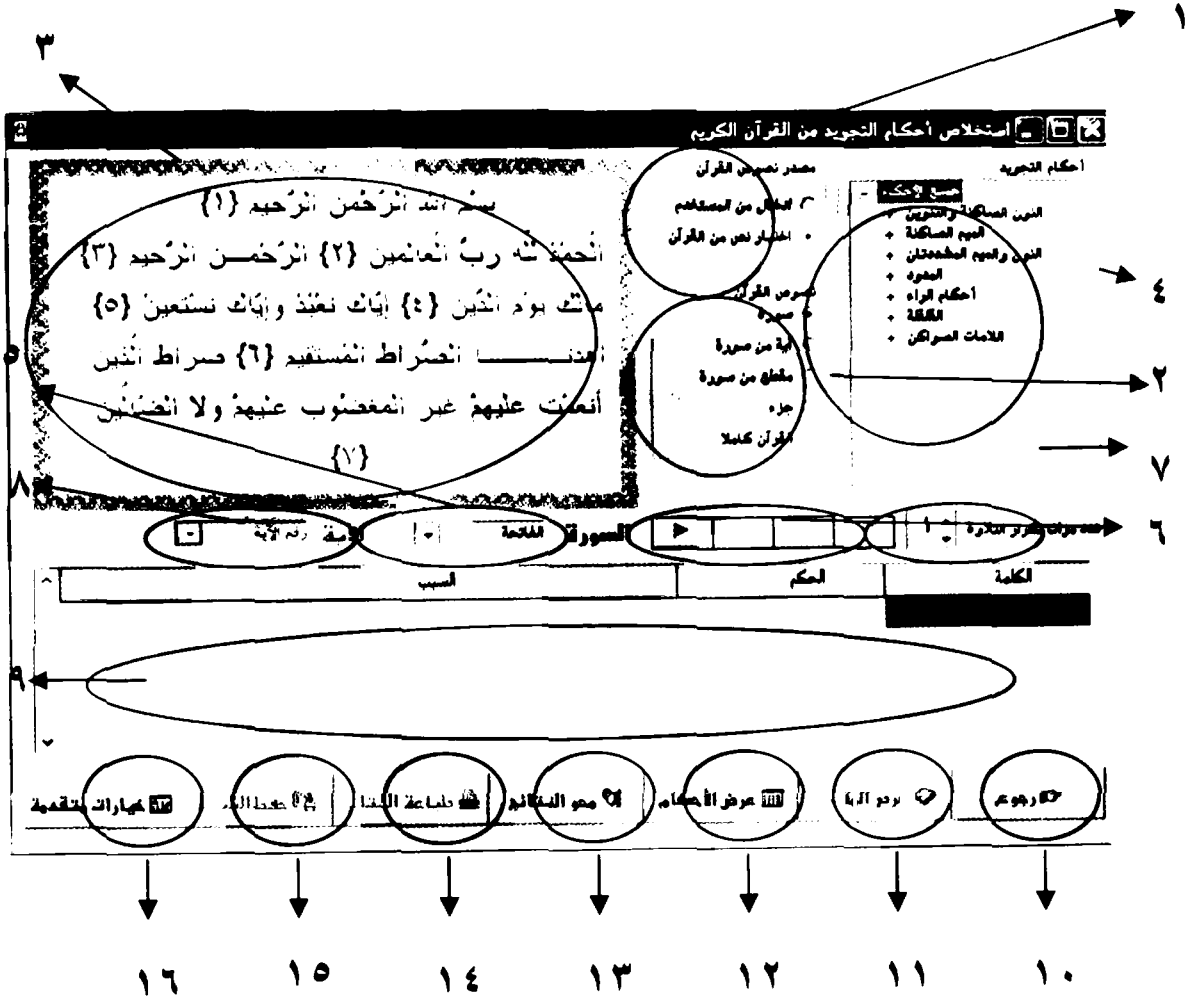 ١
٣
استخلاص أحكام التجويد من القرآن الكريم
أحكام التجويد
جميع الأحكام
النون الساكنة والتنوين
الميم الساكنة
النون والميم المشددتان
المدود
أحكام الراء
القلقلة
اللامات السواكن
مصدر نصوص القرآن
ادخال من المستخدم
اختيار نص من القرآن
نصوص القرآن
سورة
آية من سورة
مقطع من سورة
جزء
القرآن كاملا
بسم الله الرحمن الرحيم {١}
الحمد لله رب العالمين {٢} الرحمن الرحيم {٣}
مالك يوم الدين {٤} إياك نعبد وإياك نستعين {٥}
اهدنا الصراط المستقيم {٦} صراط الذين
أنعمت عليهم غير المغضوب عليهم ولا الضالين
{٧}
٤
٢
٥
٧
٨
٦
عدد مرات تكرار التلاوة
١
السورة
الفاتحة
رقم الآية
الكلمة
الحكم
السبب
٩
رجوع
عرض الأحكام
محو النتائج
طباعة
خيارات متقدمة
١٠
١١
١٢
١٣
١٤
١٥
١٦